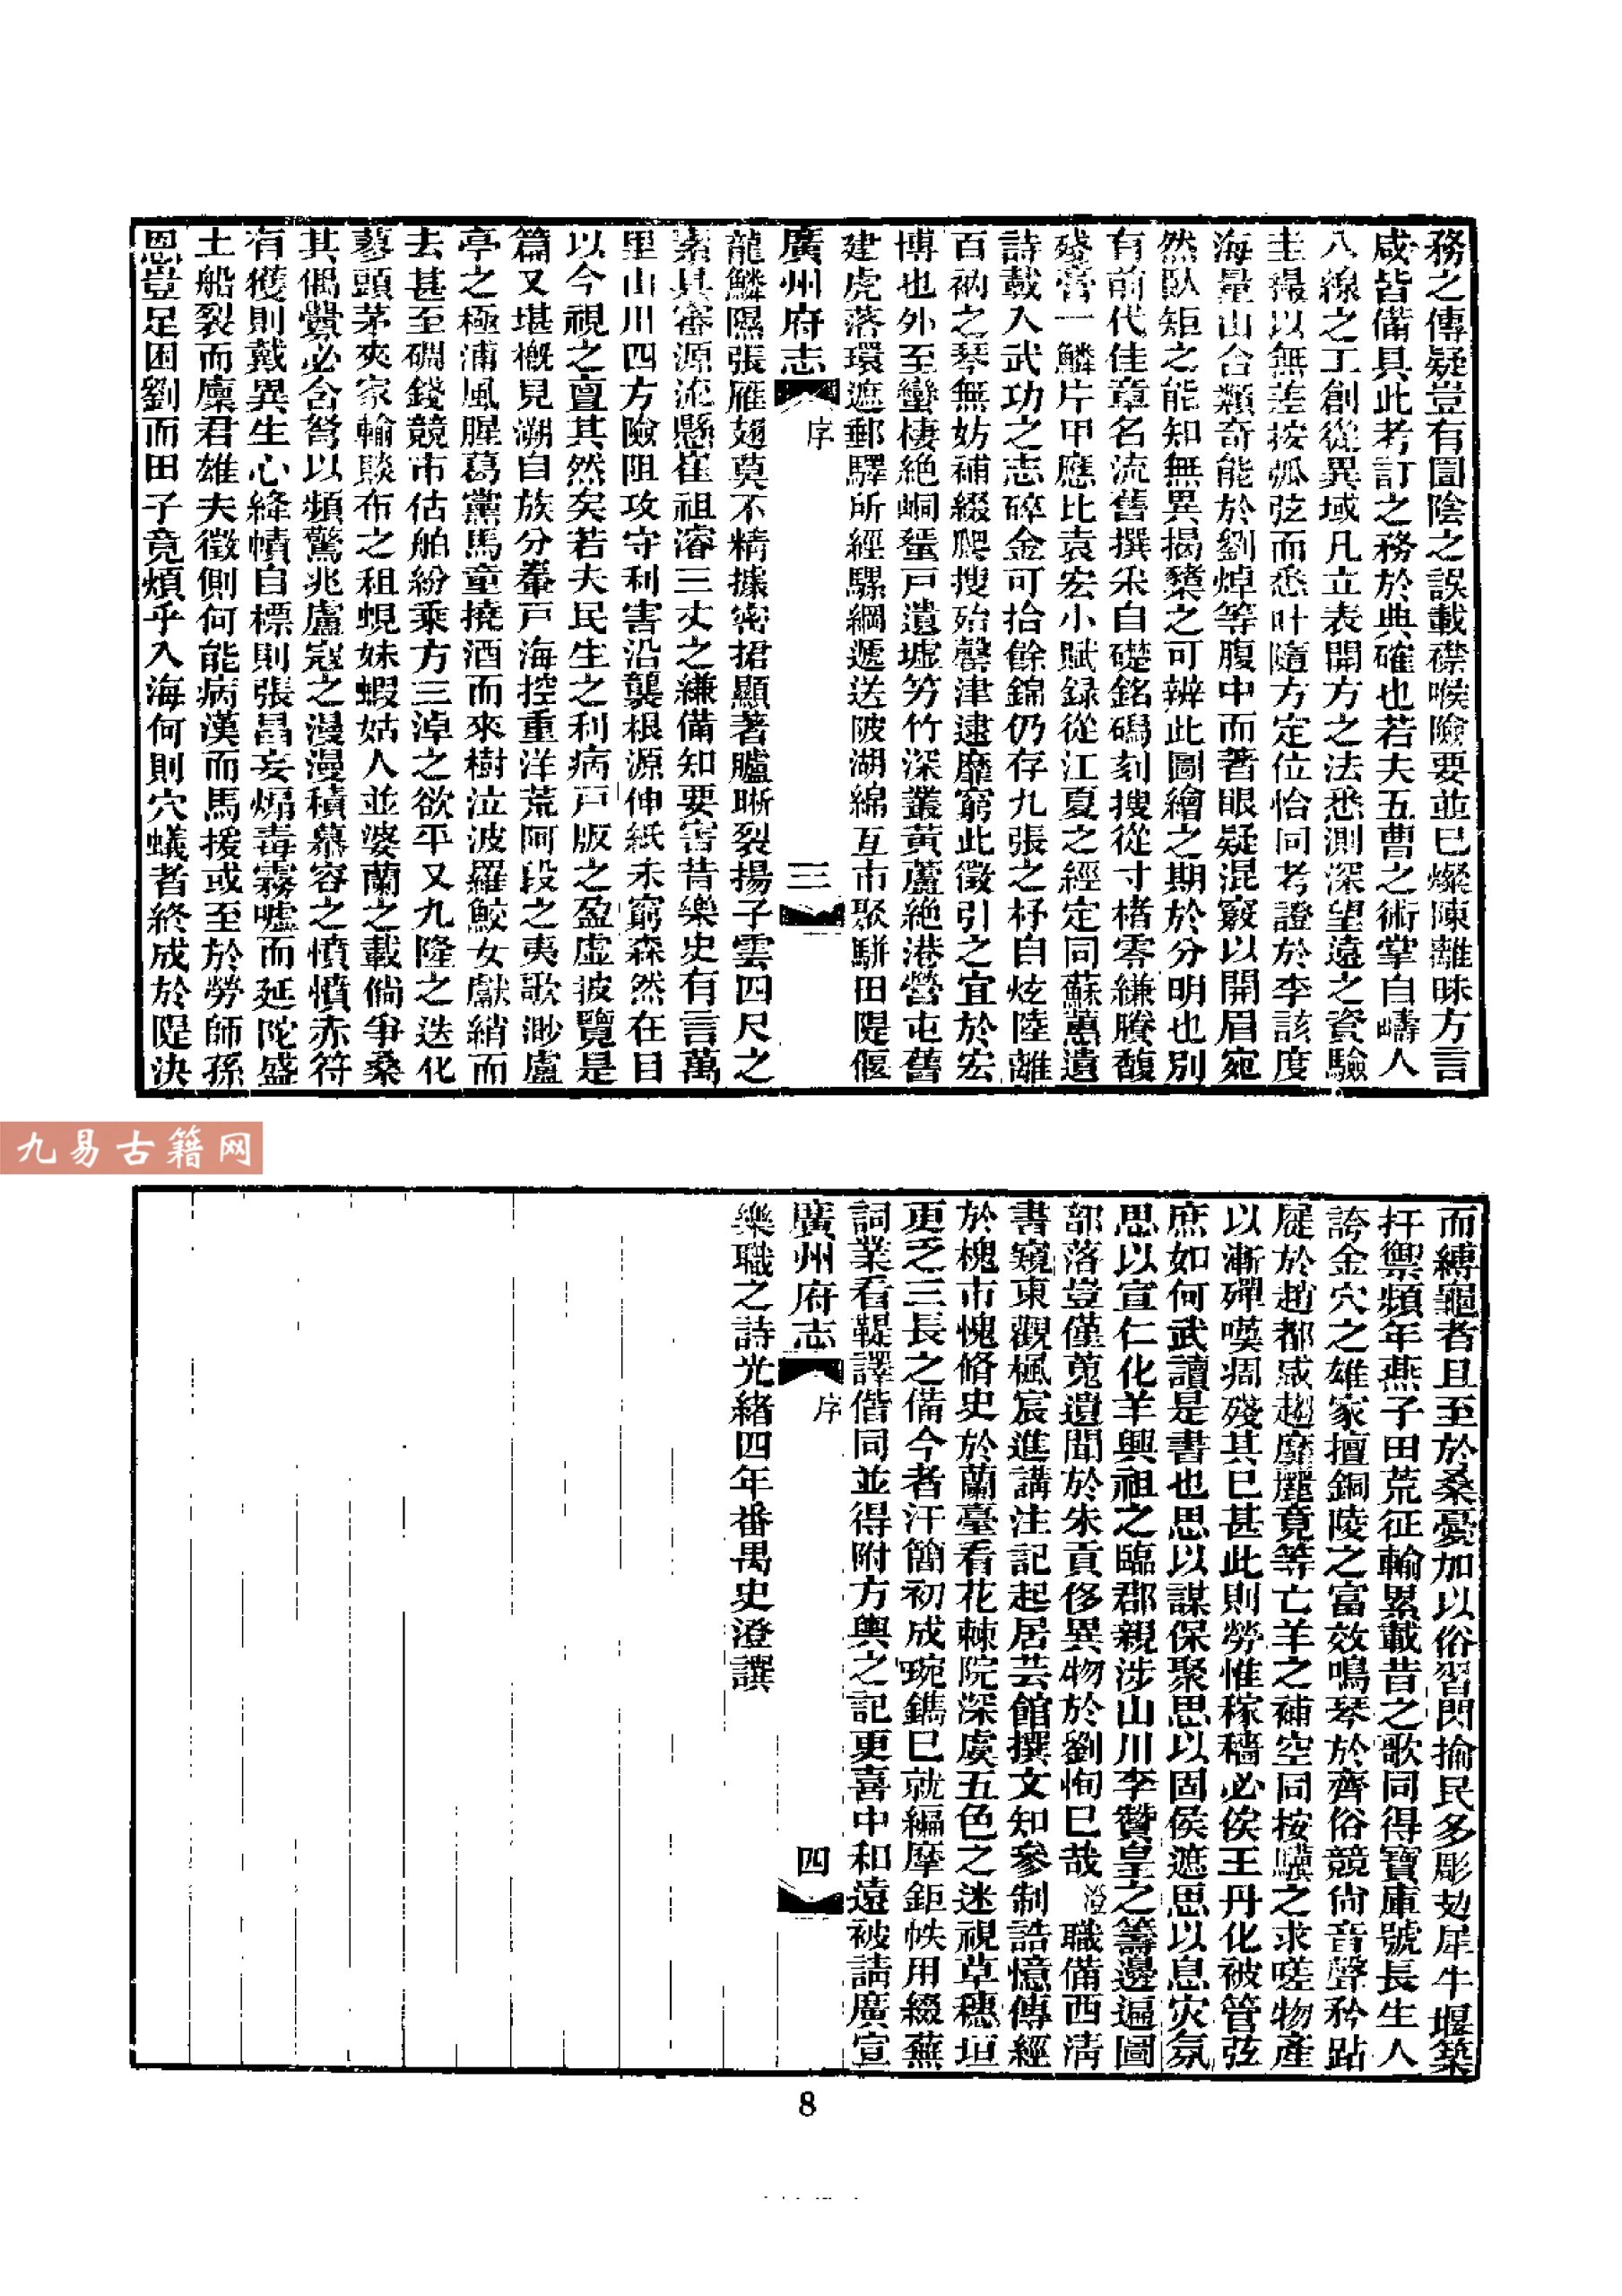 務之傳疑豈有圁陰之誤載襟喉險要並巳燦陳離昧方言
咸皆備具此考訂之務於典確也若夫五曹之術掌自疇人
八線之工創從異域凡立表開方之法悉測深望遠之資驗
圭撮以無差按弧弦而悉叶隨方定位恰同考證於李該度
海量山合類奇能於劉焯等腹中而著眼疑混竅以開眉宛
然臥矩之能知無異揭櫫之可辨此圖繪之期於分明也別
有前代佳章名流舊撰采自礎銘碣刻搜從寸楮零縑賸馥
殘膏一鱗片甲應比袁宏小賦録從江夏之經定同蘇蕙遺
詩載入武功之志碎金可拾餘錦仍存九張之杼自炫陸離
百衲之琴無妨補綴爬搜殆罄津逮靡窮此徵引之宜於宏
博也外至蠻棲絶峒蜑戸遺墟竻竹深叢黃蘆絶港營屯舊
建虎落環遮郵驛所經騾綱遞送陂湖綿亙市聚駢田隄偃
廣州府志 序 三
龍鱗隰張雁翅莫不精據密捃顯著臚晰裂揚子雲四尺之
素具審源流懸崔祖濬三丈之縑備知要害昔樂史有言萬
里山川四方險阻攻守利害沿襲根源伸紙未窮森然在目
以今視之亶其然矣若夫民生之利病戸版之盈虛披覽是
篇又堪槪見溯自族分輋戸海控重洋荒阿段之夷歌渺盧
亭之極浦風腥葛黨馬童撓酒而來樹泣波羅鮫女獻綃而
去甚至磵錢競市估舶紛乘方三淖之欲平又九隆之迭化
蓽頭茅夾家輸賧布之租蜆妹蝦姑人並婆蘭之載倘爭桑
其偶釁必含弩以頻驚兆盧寇之漫漫積慕容之憤憤赤符
有獲則戴異生心絳幘自標則張昌妄煽毒霧嘘而延陀盛
土船裂而廩君雄夫徵側何能病漢而馬援或至於勞師孫
恩豈足困劉而田子竟煩乎入海何則穴蟻者終成於隄決
而縛龜者且至於桑憂加以俗習閃揄民多彫攰犀牛堰築
扞禦頻年燕子田荒征輸累載昔之歌同得寶庫號長生人
誇金穴之雄家擅銅陵之富效鳴琴於齊俗競尙音聲矜跕
屣於趙都咸趨靡麗竟等亡羊之補空同按驥之求嗟物產
以漸殫嘆凋殘其已甚此則勞惟稼穡必俟王丹化被管弦
庶如何武讀是書也思以謀保聚思以固侯遮思以息灾氛
思以宣仁化羊興祖之臨郡親涉山川李贊皇之籌邊遍圖
部落豈僅蒐遺聞於朱貢侈異物於劉恂巳哉 澄 職備西淸
書窺東觀楓宸進講注記起居芸館撰文知參制誥憶傳經
於槐市愧脩史於蘭臺看花棘院深虞五色之迷視草穗垣
更乏三長之備今者汗簡初成琬鐫巳就編摩鉅帙用綴蕪
詞業看鞮譯偕同並得附方輿之記更喜中和遠被請廣宣
廣州府志 序 四
樂職之詩光緒四年番禺史澄譔
8
九易古籍网